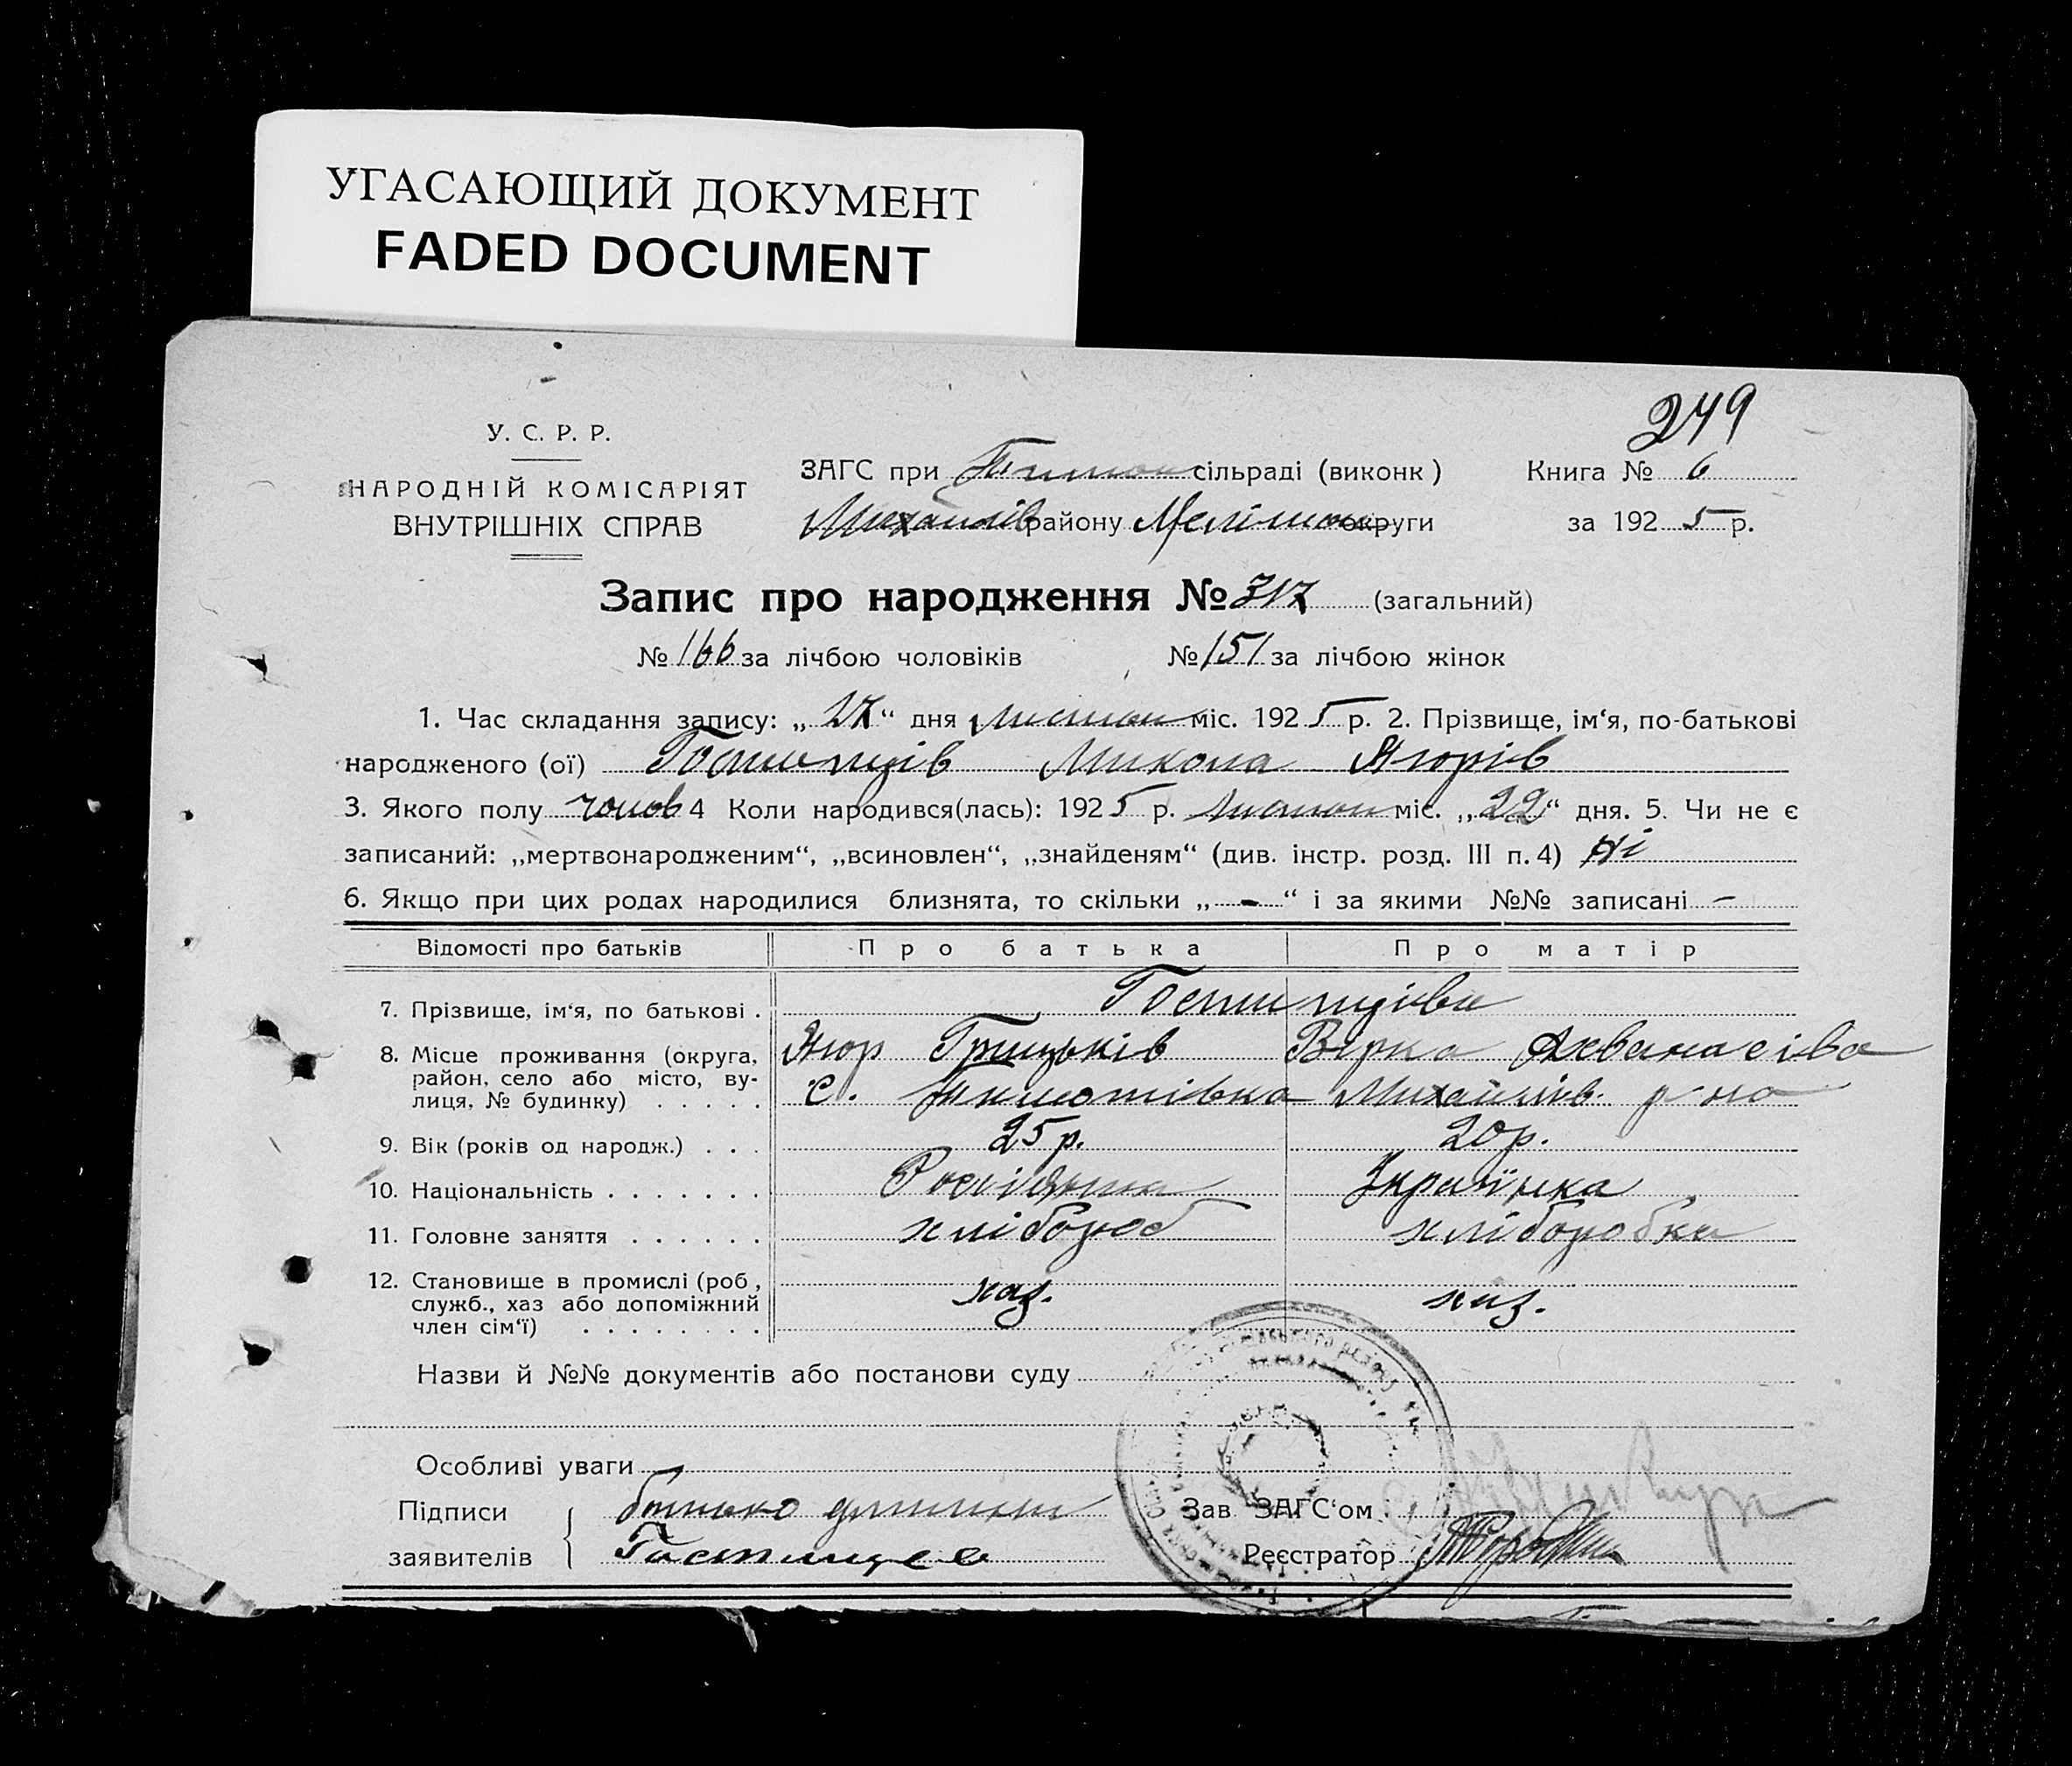 УГАСАЮЩИЙ ДОКУМЕНТ
FADED DOCUMENT
249
У. С. Р. Р.
НАРОДНІЙ КОМІСАРІЯТ
ВНУТРІШНІХ СПРАВ
ЗАГС при сільраді (виконк) Книга № 6
Михайлів району Меліт округи за 1925 р.
Запис про народження № 317 (загальний)
№ 166 за лічбою чоловіків № 151 за лічбою жінок
1. Час складання запису: „27“ дня листоп міс. 1925 р. 2. Прізвище, ім‘я, по-батькові
народженого (ої) Гостищів Микола Ягорів
3. Якого полу чолов 4 Коли народився(лась): 1925 р. листоп міс. „22“ дня. 5. Чи не є
записаний: „мертвонародженим“, „всиновлен“, „знайденям“ (див. інстр. розд. III п. 4) ні
6. Якщо при цих родах народилися близнята, то скільки „-“ і за якими №№ записані -
Відомості про батьків Про батька Про матір
7. Прізвище, ім‘я, по батькові . Гостищіви
Ягор Грицьків Вірка Ахванасіва
8. Місце проживання (округа, район, село або місто, вулиця, № будинку) . . . . . с. Тимошівка Михайлів. р-на
9. Вік (років од народж.) . . . 25 р. 20 р.
10. Національність . . . . . . . Росіянин Українка
11. Головне заняття . . . . . . хлібороб хліборобка
12. Становище в промислі (роб, служб., хаз або допоміжний член сім‘ї) . . . . . . . . хаз. хаз.
Назви й №№ документів або постанови суду
Особливі уваги
Підписи батько дитини Зав ЗАГС‘ом
заявителів Гостищев Реєстратор